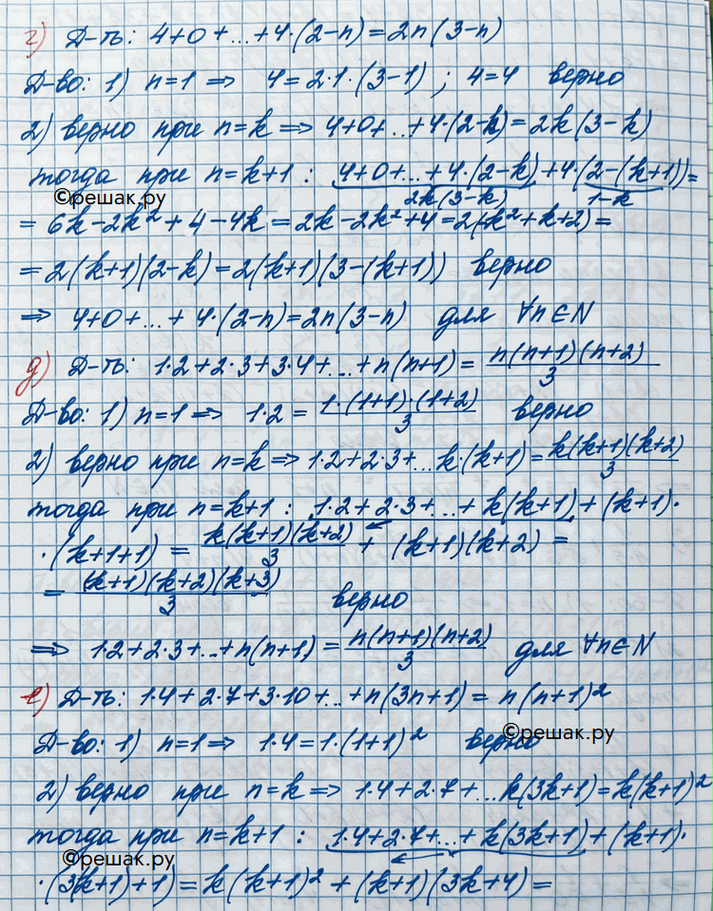 г) Д-ть: 4+0+...+4·(2-n)=2n(3-n)
Д-во: 1) n=1 ⇒ 4=2·1·(3-1) ; 4=4 верно
2) верно при n=k ⇒ 4+0+...+4·(2-k)=2k(3-k)
тогда при n=k+1 : 4+0+...+4·(2-k)+4·(2-(k+1))=
2k(3-k) 1-k
©решак.ру
= 6k-2k²+4-4k=2k-2k²+4=2(-k²+k+2)=
=2(k+1)(2-k)=2(k+1)(3-(k+1)) верно
⇒ 4+0+...+4·(2-n)=2n(3-n) для ∀n∈N
д) Д-ть: 1·2+2·3+3·4+...+n(n+1)= n(n+1)(n+2)/3
Д-во: 1) n=1 ⇒ 1·2= 1·(1+1)·(1+2)/3 верно
2) верно при n=k ⇒ 1·2+2·3+...k·(k+1)=k(k+1)(k+2)/3
тогда при n=k+1 : 1·2+2·3+...+k(k+1)+(k+1)·
·(k+1+1) = k(k+1)(k+2)/3 + (k+1)(k+2) =
= (k+1)(k+2)(k+3)/3 верно
⇒ 1·2+2·3+...+n(n+1)= n(n+1)(n+2)/3 для ∀n∈N
е) Д-ть: 1·4+2·7+3·10+...+n(3n+1)= n(n+1)²
©решак.ру
Д-во: 1) n=1 ⇒ 1·4=1·(1+1)² верно
2) верно при n=k ⇒ 1·4+2·7+...k(3k+1)=k(k+1)²
тогда при n=k+1 : 1·4+2·7+...+k(3k+1)+(k+1)·
©решак.ру
·(3(k+1)+1)=k(k+1)²+(k+1)(3k+4)=